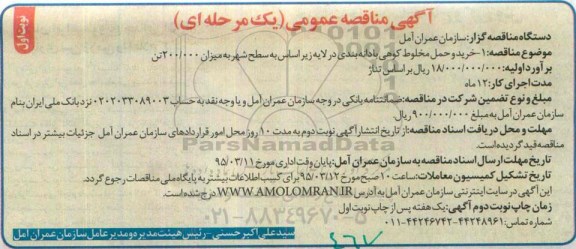 آگهی مناقصه عمومی (یک مرحله ای)
نوبت اول
دستگاه مناقصه گزار: سازمان عمران آمل
موضوع مناقصه: ۱-خرید و حمل مخلوط کوهی با دانه بندی در لایه زیر اساس به سطح شهر به میزان ۲۰۰/۰۰۰ تن
برآورد اولیه: ۱۸/۰۰۰/۰۰۰/۰۰۰ ریال بر اساس تناژ
مدت اجرای کار: ۱۲ ماه
مبلغ و نوع تضمین شرکت در مناقصه: ضمانتنامه بانکی در وجه سازمان عمران آمل و یا وجه نقد به حساب ۰۲۰۲۰۲۳۳۰۸۹۰۰۳ نزد بانک ملی ایران بنام
سازمان عمران آمل به مبلغ ۹۰۰/۰۰۰/۰۰۰ ریال
مهلت و محل دریافت اسناد مناقصه: از تاریخ انتشار آگهی نوبت دوم به مدت ۱۰ روز محل امور قراردادهای سازمان عمران آمل جزئیات بیشتر در اسناد
مناقصه قید گردیده است.
تاریخ مهلت ارسال اسناد مناقصه به سازمان عمران آمل: پایان وقت اداری مورخ ۹۵/۰۳/۱۱
تاریخ تشکیل کمیسیون معاملات: ساعت ۱۰ صبح مورخ ۹۵/۰۳/۱۲ برای کسب اطلاعات بیشتر به پایگاه ملی مناقصات رجوع گردد.
این آگهی در سایت اینترنتی سازمان عمران آمل به آدرس WWW.AMOLOMRAN.IR درج شده است.
زمان چاپ نوبت دوم آگهی: یک هفته پس از چاپ نوبت اول
شماره تماس: ۴۴۲۴۸۹۶۱-۴۴۲۴۶۷۴۳-۰۱۱
سید علی اکبر حسنی - رئیس هیئت مدیره و مدیر عامل سازمان عمران آمل
ParsNamadData
۰۲۱-۸۸۳۴۹۶۷۰-۵